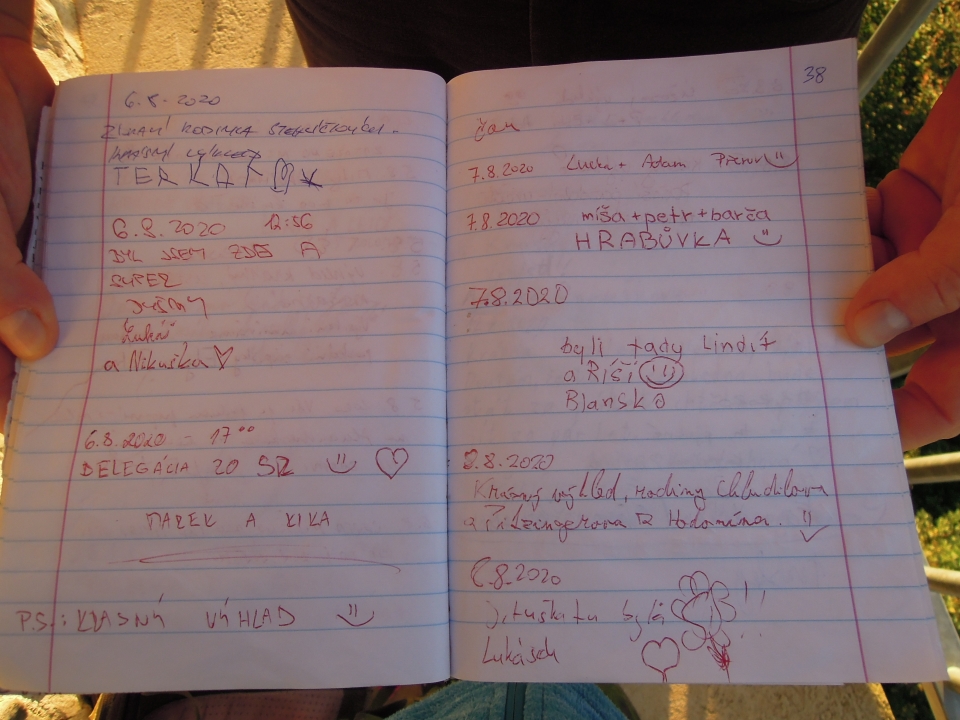 6.8.2020
RODINKA
TERKA
6.8.2020 12:56
BYL JSEM ZDE A
SUPER
Lukáš
a Nikuška
6.8.2020 - 17⁰⁰
DELEGÁCIA ZO SR
MAREK A KIKA
P.S.: KRÁSNÝ VÝHLAD
38
Jan
7.8.2020 Lucka + Adam Přerov
7.8.2020 míša + petr + barča
HRABŮVKA
7.8.2020
byli tady
a Ríší
Blansko
8.8.2020
Krásný výhled, rodiny
a z Hodonína.
8.8.2020
Jituška tu byla !!
Lukásek